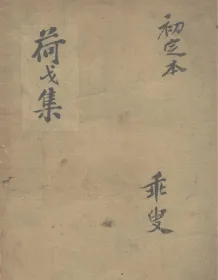 初定本
荷戈集
乖叟